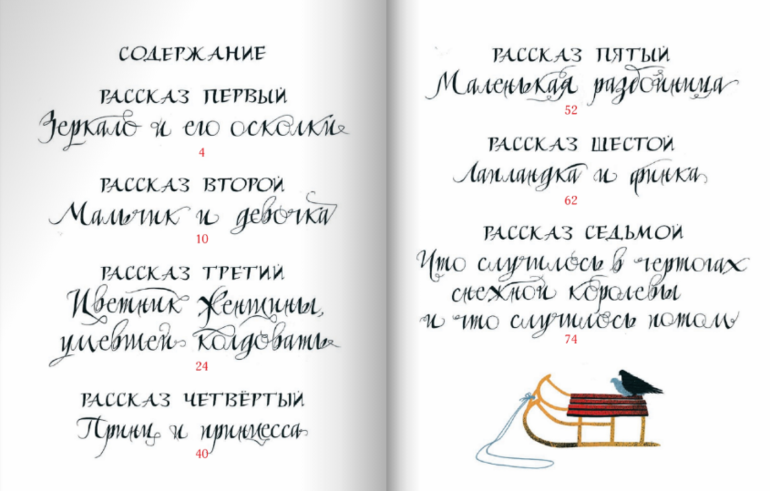 СОДЕРЖАНИЕ
РАССКАЗ ПЕРВЫЙ
Зеркало и его осколки
4
РАССКАЗ ВТОРОЙ
Мальчик и девочка
10
РАССКАЗ ТРЕТИЙ
Цветник женщины,
умевшей колдовать
24
РАССКАЗ ЧЕТВЁРТЫЙ
Принц и принцесса
40
РАССКАЗ ПЯТЫЙ
Маленькая разбойница
52
РАССКАЗ ШЕСТОЙ
Лапландка и финка
62
РАССКАЗ СЕДЬМОЙ
Что случилось в чертогах
снежной королевы
и что случилось потом
74